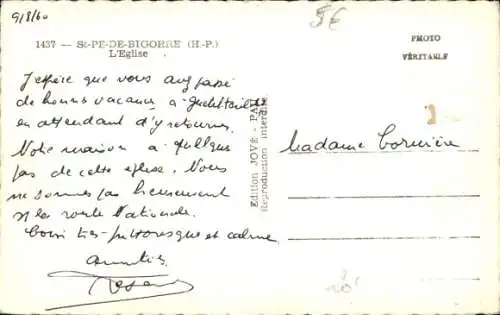 9/8/60
5€
1437 — St-PE-DE-BIGORRE (H.-P.)
L'Eglise
J'espère que vous avez passé
de bonnes vacances à
en attendant d'y retourner.
Notre maison à quelques
pas de cette église. Nous
ne sommes pas heureusement
sur la route Nationale.
Coin très pittoresque et calme
Amitiés
Edition JOVÉ - PAU
Reproduction interdite.
PHOTO
VÉRITABLE
Madame